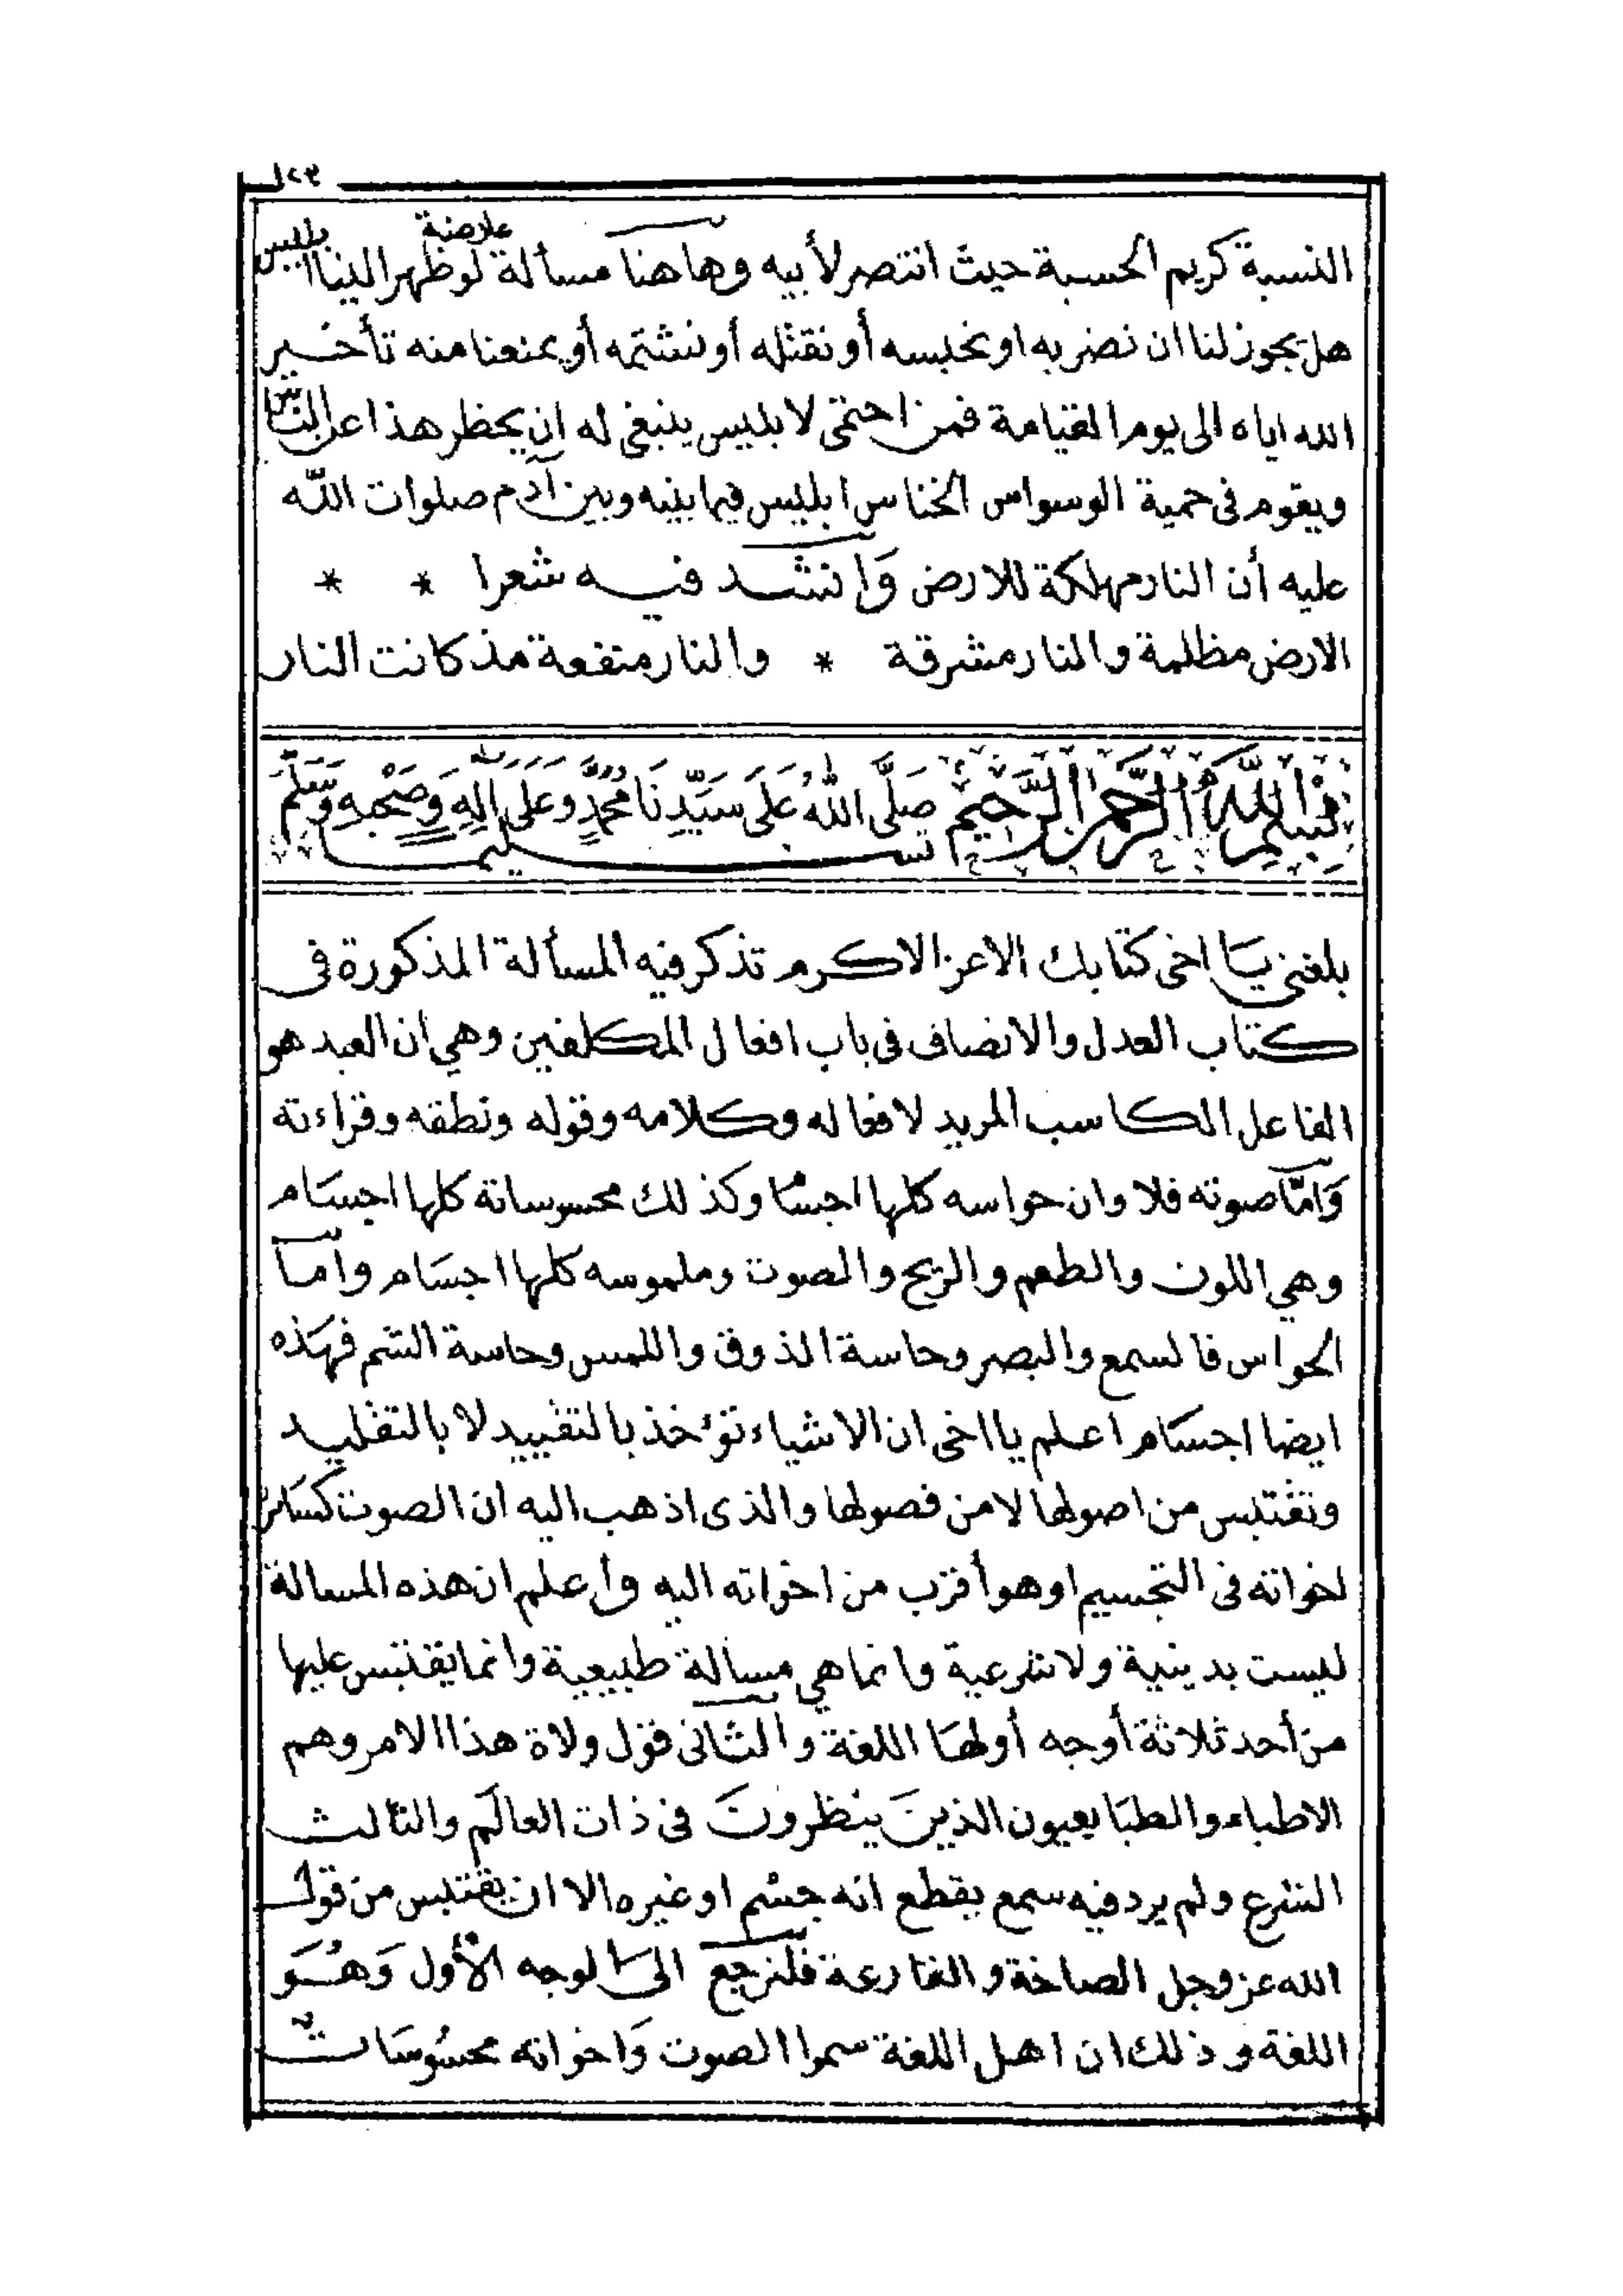 ١٢٣
النسبة كريم الحسبة حيث انتصر لأبيه وهاهنا مسألة لو ظهر الينا ابليس علاضية
هل يجوز لنا ان نضربه او نحبسه أو نقتله أو نشتمه أو يمنعنا منه تأخير
الله اياه الى يوم القيامة فمن احتمى لابليس ينبغى له ان يحظر هذا على الناس
ويقوم فى حمية الوسواس الخناس ابليس فيما بينه وبين آدم صلوات الله
عليه أن النار مهلكة للارض وَانشد فيه شعرا * *
الارض مظلمة والنار مشرقة * والنار منفعة مذ كانت النار
بسم الله الرحمن الرحيم صَلَّى اللهُ عَلَى سَيِّدِنَا مُحَمَّدٍ وَعَلَى الِهِ وَصَحْبِهِ وَسَلَّمَ
تسليما
بلغنى يا اخى كتابك الاعز الاكرم تذكر فيه المسألة المذكورة فى
كتاب العدل والانصاف فى باب افعال المكلفين وهي ان العبد هو
الفاعل الكاسب المريد لافعاله وكلامه وقوله ونطقه وقراءته
وَامّا صوته فلا وان حواسه كلها اجسَاما وكذلك محسوساتة كلها اجسَام
وهي اللون والطعم والريح والصوت وملموسه كلها اجسَام وامّا
الحواس فالسمع والبصر وحاسة الذوق واللمس وحاسة الشم فهَذه
ايضا اجسَام اعلم يا اخى ان الاشياء تؤخذ بالتقييد لا بالتقليد
وتقتبس من اصولها لا من فصولها والذى اذهب اليه ان الصوت كسَائر
اخواته فى التجسيم او هو أقرب من اخواته اليه وأعلم ان هذه المسالة
ليست بدينية ولا شرعية وانما هي مسالة طبيعية وانما يقتبس عليها
من أحد ثلاثة أوجه أولهَا اللغة والثانى قول ولاة هذا الامر وهم
الاطباء والطبَايعيون الذينَ ينظرونَ فى ذات العالَم والثالث
الشرع ولم يرد فيه سمع يقطع انه جسْم او غيره الا ان يقتبس من قول
الله عز وجل الصاخة والقارعة فلنرجع الى الوجه الأول وَهُوَ
اللغة وذلك ان اهل اللغة سموا الصوت وَاخواته محسُوسَات